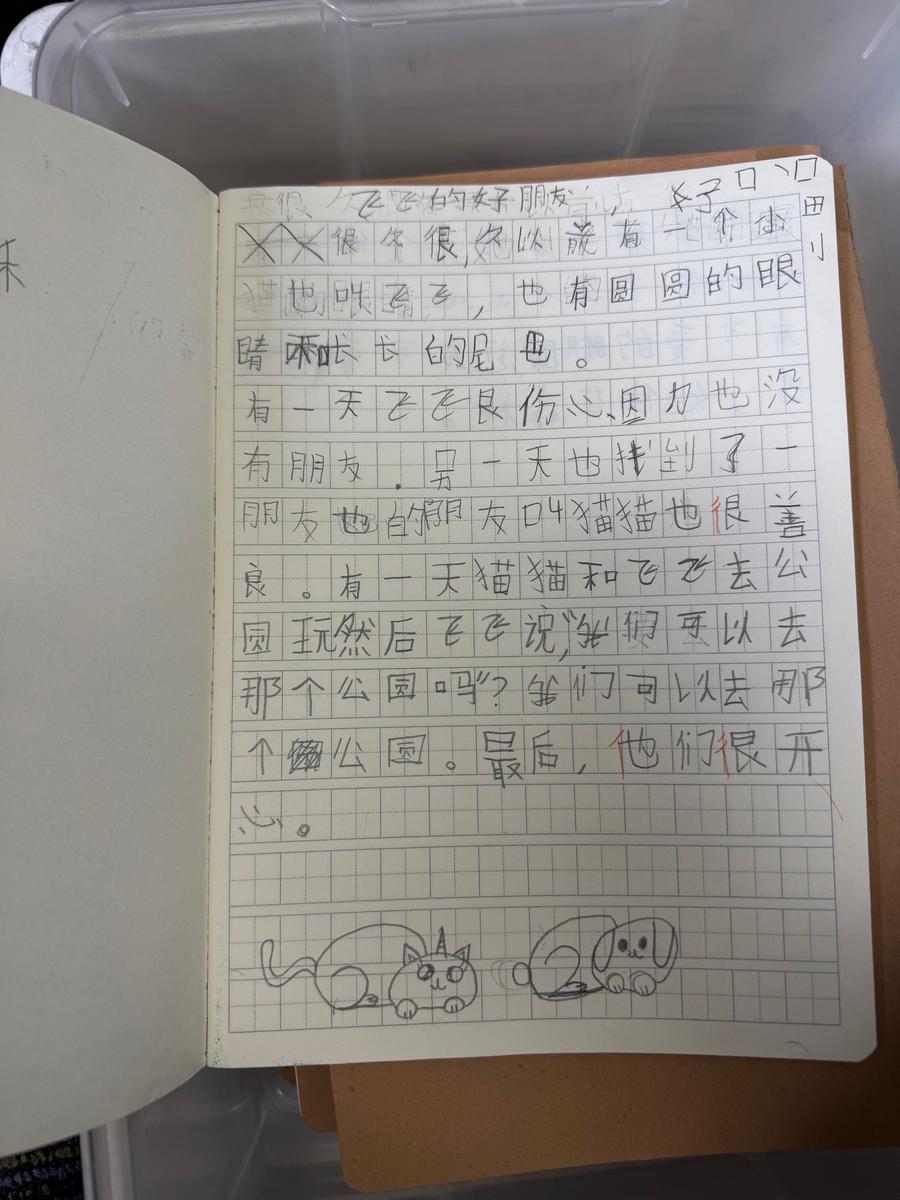 飞飞的好朋友
很久很久以前有一个小
也叫飞飞，也有圆圆的眼
睛和长长的尾巴。
有一天飞飞良伤心、因为也没
有朋友．另一天也找到了一
朋友也的朋友叫猫猫也很善
良。有一天猫猫和飞飞去公
园玩然后飞飞说，“我们可以去
那个公园吗”？我们可以去那
个公园。最后，他们很开
心。